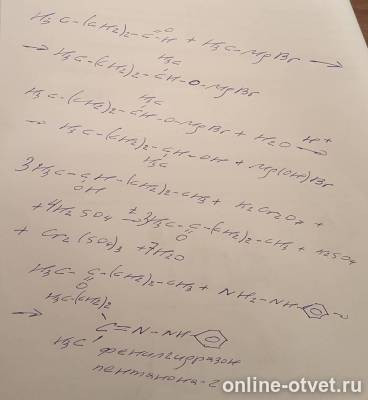 H₃C-(CH₂)₂-C-H + H₃C-MgBr →
=O
H₃C
→ H₃C-(CH₂)₂-CH-O-MgBr
H₃C
H₃C-(CH₂)₂-CH-O-MgBr + H₂O H⁺→
→ H₃C-(CH₂)₂-CH-OH + Mg(OH)Br
H₃C
3H₃C-CH-(CH₂)₂-CH₃ + K₂Cr₂O₇ +
OH
+ 4H₂SO₄ t→ 3H₃C-C-(CH₂)₂-CH₃ + K₂SO₄
O
+ Cr₂(SO₄)₃ + 7H₂O
H₃C-C-(CH₂)₂-CH₃ + NH₂-NH- →
O
H₃C(CH₂)₂
→ C=N-NH-
H₃C
фенилгидразон
пентанона-2
online-otvet.ru